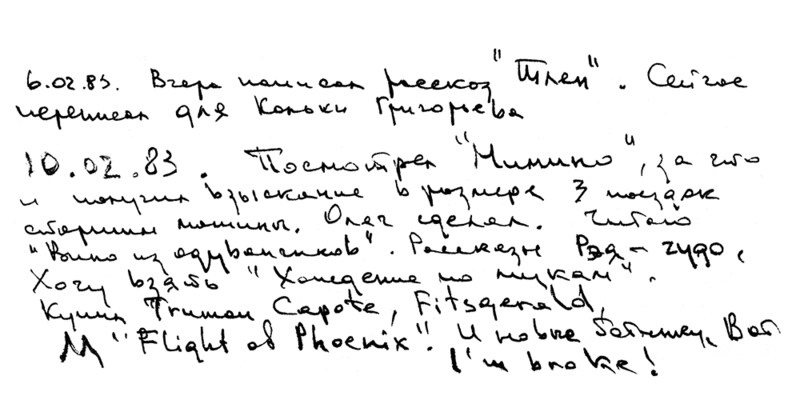 6.02.83. Вчера написал рассказ "Тлен". Сейчас
переписал для Кольки Григорьева
10.02.83. Посмотрел "Мимино", за что
и получил взыскание в размере 3 поездок
старшим машины. Олег сделал. Читаю
"Вино из одуванчиков". Рассказы Рэя – чудо.
Хочу взять "Хождение по мукам".
Купил Truman Capote, Fitsgerald,
И "Flight of Phoenix". И новые ботинки.
I'm broke!